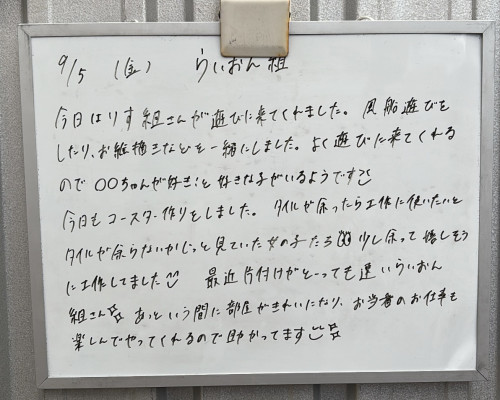 9/5 (金) らいおん組
今日はりす組さんが遊びに来てくれました。風船遊びを
したり、お絵描きなどを一緒にしました。よく遊びに来てくれる
ので〇〇ちゃんが好き!と好きな子がいるようです
今日もコースター作りをしました。タイルが余ったら工作に使いたいと
タイルが余らないかじっと見ていた女の子たち 少し余って嬉しそう
に工作してました 最近片付けがとーっても速いらいおん
組さん あっという間に部屋がきれいになり、お当番のお仕事も
楽しんでやってくれるので助かってます